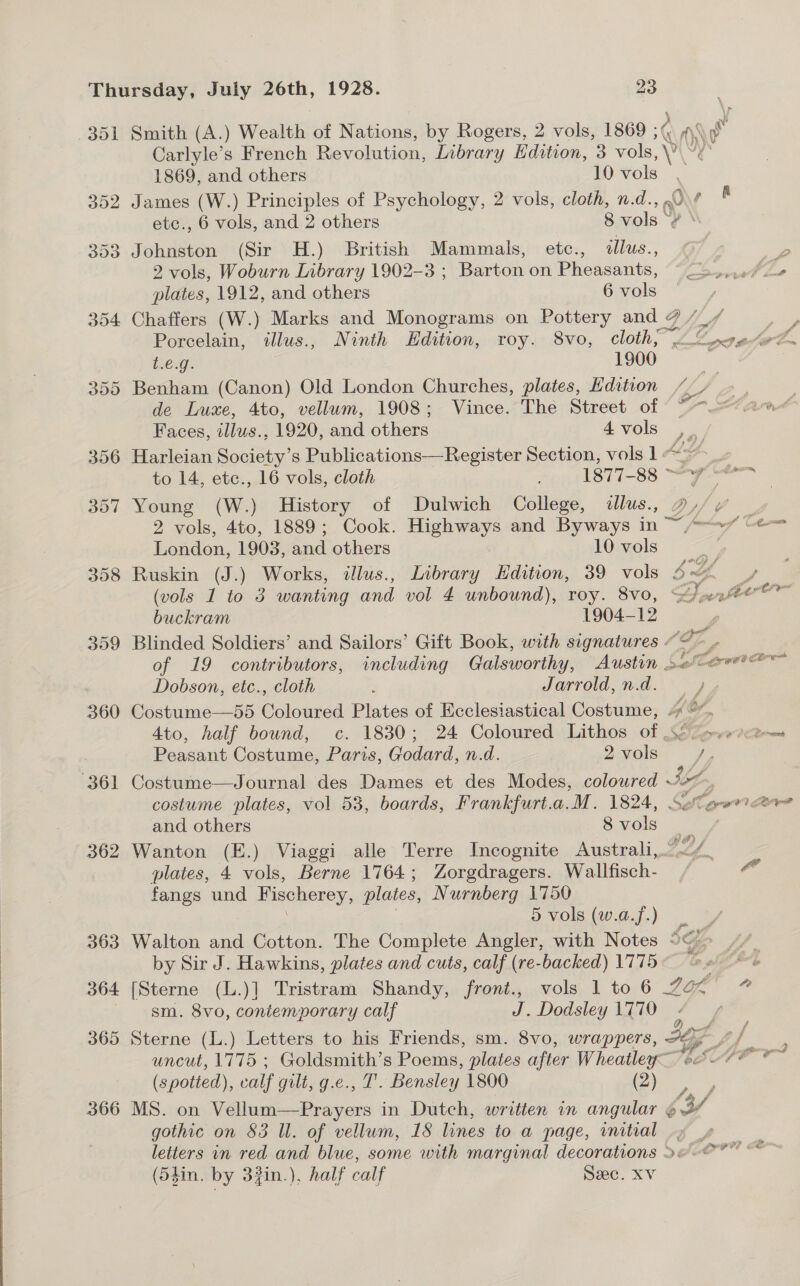 Thursday, July 26th, 1928. 23
351 Smith (A.) Wealth of Nations, by Rogers, 2 vols, 1869 ;
Carlyle's French Revolution, Library Edition, 3 vols,
1869, and others 10 vols
352 James (W.) Principles of Psychology, 2 vols, cloth, n.d.,
etc., 6 vols, and 2 others 8 vols
353 Johnston (Sir H.) British Mammals, etc., illus.,
2 vols, Woburn Library 1902-3 ; Barton on Pheasants,
plates, 1912, and others 6 vols
354 Chaffers (W.) Marks and Monograms on Pottery and
Porcelain, illus., Ninth Edition, roy. 8vo, cloth,
t.e.g. 1900
355 Benham (Canon) Old London Churches, plates, Edition
de Luxe, 4to, vellum, 1908 ; Vince. The Street of
Faces, illus., 1920, and others 4 vols
356 Harleian Society's Publications—Register Section, vols 1
to 14, etc., 16 vols, cloth 1877-88
357 Young (W.) History of Dulwich College, illus.,
2 vols, 4to, 1889 ; Cook. Highways and Byways in
London, 1903, and others 10 vols
358 Ruskin (J.) Works, illus., Library Edition, 39 vols
(vols 1 to 3 wanting and vol 4 unbound), roy. 8vo,
buckram 1904-12
359 Blinded Soldiers' and Sailors' Gift Book, with signatures
of 19 contributors, including Galsworthy, Austin
Dobson, etc., cloth Jarrold, n.d.
360 Costume—55 Coloured Plates of Ecclesiastical Costume,
4to, half bound, c. 1830 ; 24 Coloured Lithos of
Peasant Costume, Paris, Godard, n.d. 2 vols
361 Costume—Journal des Dames et des Modes, coloured
costume plates, vol 53, boards, Frankfurt.a.M. 1824,
and others 8 vols
362 Wanton (E.) Viaggi alle Terre Incognite Australi,
plates, 4 vols, Berne 1764 ; Zorgdragers. Wallfisch-
fangs und Fischerey, plates, Nurnberg 1750
5 vols (w.a.f.)
363 Walton and Cotton. The Complete Angler, with Notes
by Sir J. Hawkins, plates and cuts, calf (re-backed) 1775
364 [Sterne (L.)] Tristram Shandy, front., vols 1 to 6
sm. 8vo, contemporary calf J. Dodsley 1770
365 Sterne (L.) Letters to his Friends, sm. 8vo, wrappers,
uncut, 1775 ; Goldsmith's Poems, plates after Wheatley
(spotted), calf gilt, g.e., T. Bensley 1800 (2)
366 MS. on Vellum—Prayers in Dutch, written in angular
gothic on 83 ll. of vellum, 18 lines to a page, initial
letters in red and blue, some with marginal decorations
(5½in. by 3¾in.), half calf Sæc. XV